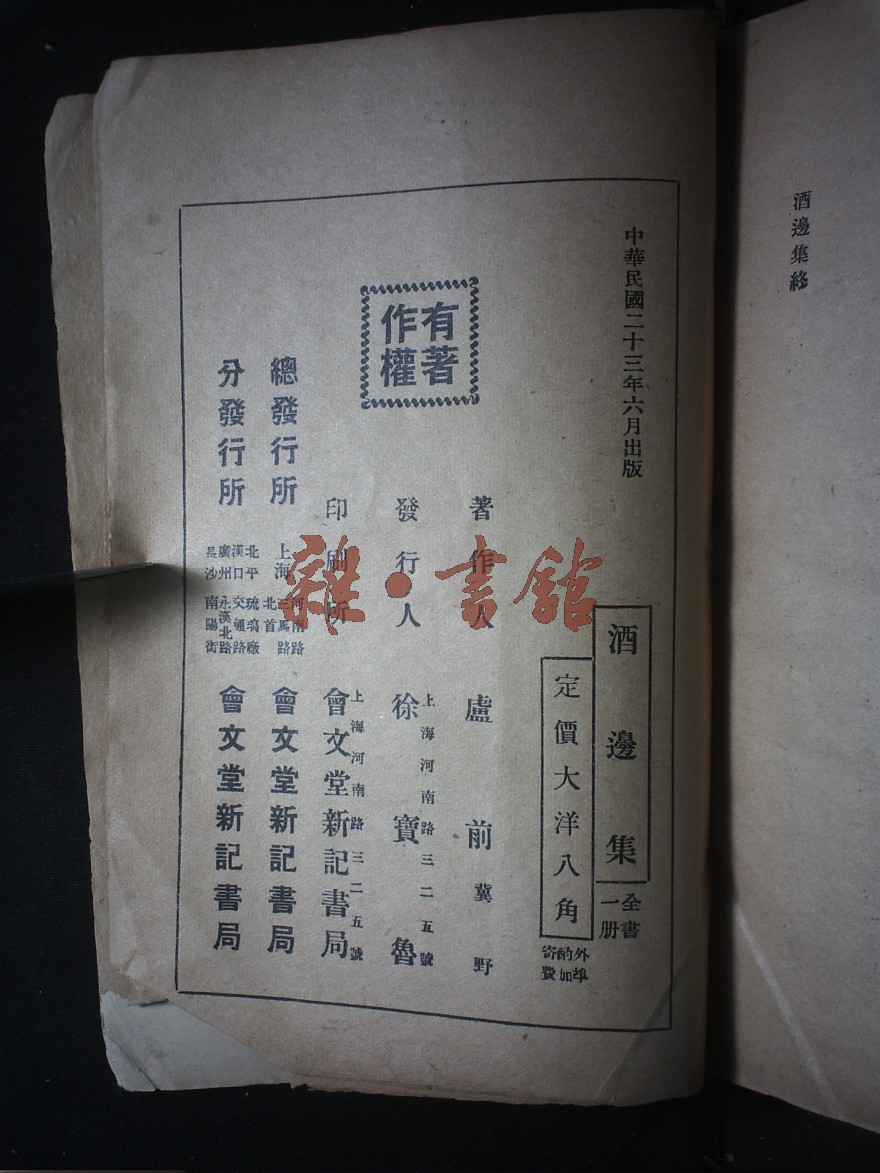 酒邊集終
中華民國二十三年六月出版
酒邊集
全書
一册
定價大洋八角
外埠
酌加
寄費
有著
作權
著作人
盧前
冀野
發行人
上海河南路三二五號
徐寶魯
印刷所
上海河南路三二五號
會文堂新記書局
總發行所
上海
河南路
三馬路
北首
會文堂新記書局
分發行所
北平 琉璃廠
漢口 交通路
廣州 永漢北路
長沙 南陽街
會文堂新記書局
雜·書館